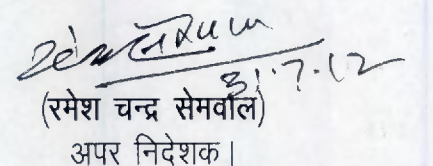 31.7.12
(रमेश चन्द्र सेमवाल)
अपर निदेशक।